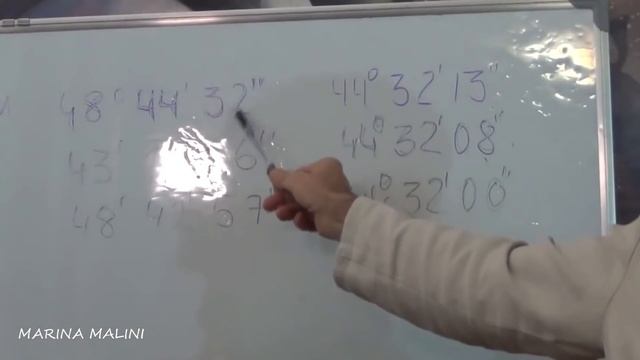 48° 44' 32" 44° 32' 13"
43° 6" 44° 32' 08"
48° 57" 44° 32' 00"
MARINA MALINI